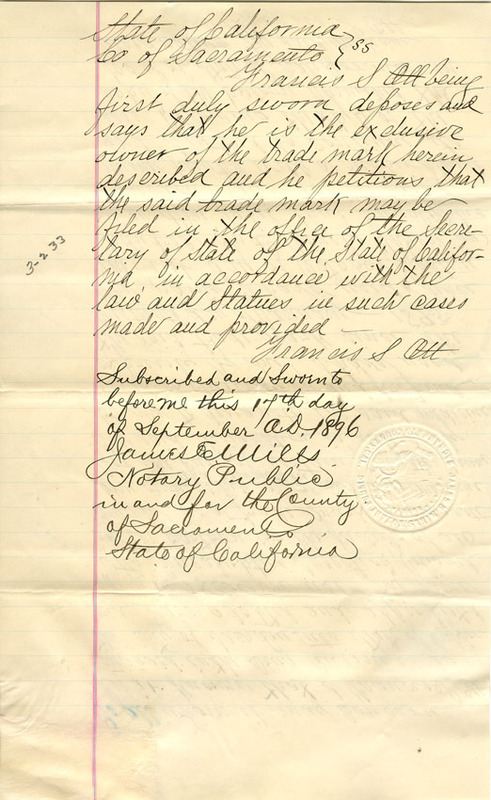 State of California
Co of Sacramento } ss
Francis S Ott being
first duly sworn deposes and
says that he is the exclusive
owner of the trade mark herein
described and he petitions that
the said trade mark may be
filed in the office of the Secre-
tary of State of the State of Califor-
nia in accordance with the
law and Statues in such cases
made and provided —
Francis S Ott
Subscribed and Sworn to
before me this 17th day
of September A.D. 1896
James E Mills
Notary Public
in and for the County
of Sacramento
State of California
3-2 33